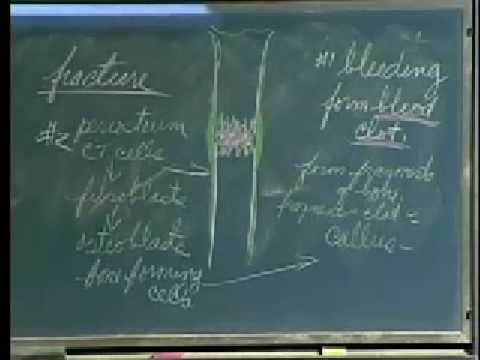 fracture
#2 periosteum
CT cells
fibroblasts
osteoblasts
bone forming
cells
#1 bleeding
form blood
clot.
form
of body
clot =
callus -